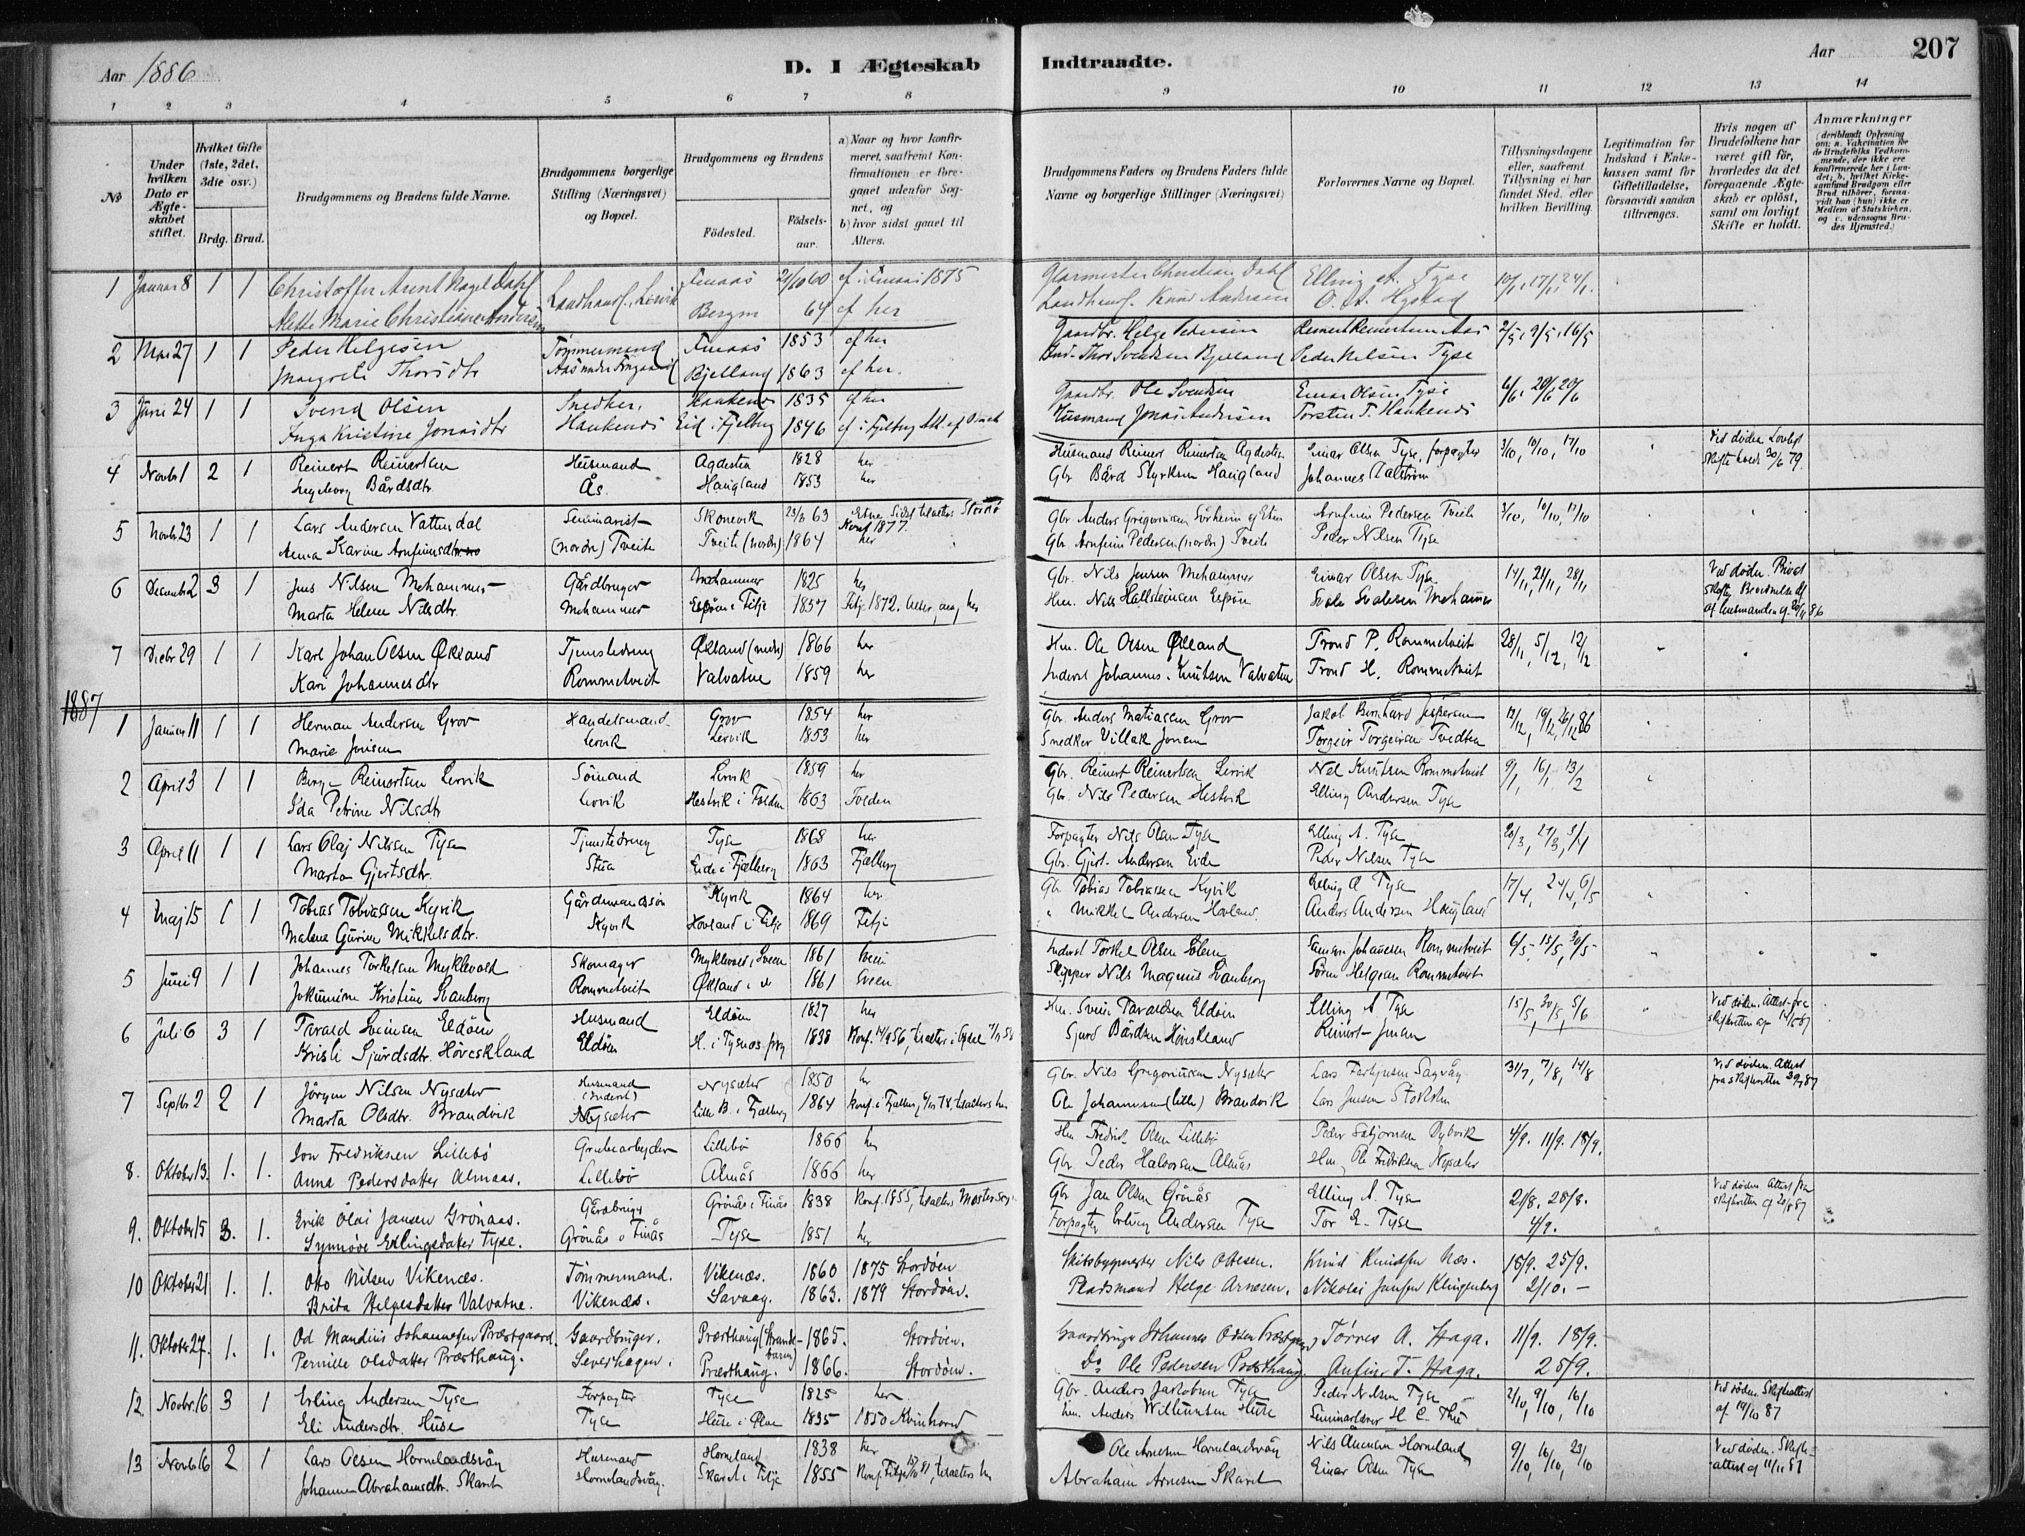 Aar 1886
D. I Ægteskab Indtraadte.
Aar 207
1 2 3 4 5 6 7 8 9 10 11 12 13 14
No
Under hvilken Dato er Ægteskabet stiftet.
Hvilket Gifte (1ste, 2det, 3die osv.)
Brdg. Brud.
Brudgommens og Brudens fulde Navne.
Brudgommens borgerlige Stilling (Næringsvei) og Bopæl.
Brudgommens og Brudens
Fødested.
Fødsels-aar.
a) Naar og hvor konfirmeret, saafremt Konfirmationen er foregaaet udenfor Sognet, og
b) hvor sidst gaaet til Alters.
Brudgommens Faders og Brudens Faders fulde Navne og borgerlige Stillinger (Næringsvei)
Forlovernes Navne og Bopæl.
Tillysningsdagene eller, saafremt Tillysning ei har fundet Sted, efter hvilken Bevilling.
Legitimation for Indskud i Enkekassen samt for Giftetilladelse, forsaavidt saadan tiltrænges.
Hvis nogen af Brudefolkene har været gift før, hvorledes da det foregaaende Ægteskab er opløst, samt om lovligt Skifte er holdt.
Anmærkninger
1 Januar 8 1 1 Christoffer Arent Nagel Dahl Landhandl. Lervik Finaas 21/10 60 cf. i Finaas 1875 Glarmester Christian Dahl Elling A. Tyse 10/1, 17/1, 24/1
Mette Marie Christiane Andersen Bergen 64 cf her Landhandl. Knud Andersen O. A. Hystad
2 Mai 27 1 1 Peder Helgesen Tømmermand Finaas 1853 cf her Gaardbr. Helge Pedersen Reinert Reinertsen Aas 2/5, 9/5, 16/5
Margrete Thorsdtr Bjelland 1863 cf her. Ind. Thor Svendsen Bjelland Peder Nilsen Tyse
3 Juni 24 1 1 Svend Olsen Snedker, Haukenes 1835 cf her Gaardbr. Ole Svendsen Einar Olsen Tyse 6/6, 20/6, 20/6
Inga Kristine Jonasdtr Haukenes Eid i Fjelberg 1846 Husmand Jonas Andersen Torsten T. Haukenes
4 Novbr 1 2 1 Reinert Reinertsen Husmand Agdestein 1828 her Husmand Reinert Reinertsen Agdestein Einar Olsen Tyse, forpagter 3/10, 10/10, 17/10 Ved døden. Lovligt Skifte holdt 30/6 79.
Ingeborg Bårdsdtr. Ås. Haugland 1853 her Gbr. Bård Styrksen Haugland Johannes Aalstrøm
5 Novbr 23 1 1 Lars Andersen Vattendal Seminarist Skonevik 23/3 63 Etne. Sidst tilalters Stordø Konf. 1877. Gbr Anders Gregoriusen Sørheim af Etne Arnfinn Pedersen Tveite 3/10, 10/10, 17/10
Anna Karine Arnfinnsdtr (nordr) Tveite Tveite (nordr) 1864 her Gbr Arnfinn Pedersen (nordr) Tveite Peder Nilsen Tyse
6 Decembr 2 3 1 Jens Nilsen Mehammer Gårdbruger Mehammer 1825 her Gbr. Nils Jensen Mehammer Einar Olsen Tyse 14/11, 21/11, 28/11 Ved døden.
Marta Helene Nilsdtr. Mehammer Espøen i Fitje 1857 Fitj. 1872. Hm. Nils Hallsteinsen Espøen
7 Decbr 29 1 1 Karl Johan Olsen Økland Tjenestedreng Økland (nedre) 1866 her Hm. Ole Olsen Økland Trond P. Rommetveit 28/11, 5/12, 12/12
Kari Johannesdtr Rommetveit Valvatne 1859 her Inderst Johannes Knutsen Valvatne Trond H. Rommetveit
1887
1 Januar 11 1 1 Herman Andersen Grov Handelsmand Grov 1854 her Gbr. Anders Matiassen Grov Jakob Bernhard Jespersen 12/12, 19/12, 26/12 86
Marie Jensen Lervik Lervik 1853 her Snedker Villak Jensen Torgeir Torgeirsen Tvedten
2 April 3 1 1 Børge Reinertsen Lervik Sømand Lervik 1859 her Gbr. Reinert Reinertsen Lervik Nils Knutsen Rommetveit 9/1, 16/1, 13/2
Ida Petrine Nilsdtr Lervik Hestvik i Folden 1863 Folden Gbr. Nils Pedersen Hestvik Elling Andersen Tyse
3 April 11 1 1 Lars Olaj Nilsen Tyse Tjenestedreng Tyse 1868 her Forpagter Nils Olsen Tyse Elling A. Tyse 20/3, 27/3, 3/4
Marta Gjertsdtr. Stua Eide i Fjælberg 1863 Fjælberg Gbr. Gjert Andersen Eide Peder Nilsen Tyse
4 Maj 15 1 1 Tobias Tobiassen Kyvik Gårdmandssøn Kyvik 1864 her Gbr Tobias Tobiassen Kyvik Elling A Tyse 17/4, 24/4, 6/5
Malene Gurine Mikkelsdtr. Kyvik Hovland i Fitje 1869 Fitje " Mikkel Andersen Hovland. Anders Andersen Haugland
5 Juni 9 1 1 Johannes Torkelsen Myklevold Skomager Myklevold i Sveen 1861 Sveen Inderst Torkel Olsen Solem Samson Johannesen Rommetveit 6/5, 15/5, 30/5
Jokumine Kristine Svanberg Rommetveit Økland i do 1861 Sveen Skipper Nils Magnus Svanberg Sören Helgesen Rommetveit
6 Juli 6 3 1 Tarald Sveinsen Eldøen Husmand Eldøen 1827 her Hm. Svein Taraldsen Eldøen Elling A Tyse 15/5, 30/5, 5/6 Ved døden. Attest fra skifteretten af 14/5 87
Kristi Sjurdsdtr. Høviskland Eldøen H. i Tysnes prg 1838 Sjurd Bårdsen Høviskland Reinert Jensen
7 Septbr 2 2 1 Jörgen Nilsen Nysæter Husmand (Inderst) Nysæter 1850 her Gbr. Nils Gregoriusen Nysæter Lars Torbjörnsen Sagvåg 31/7, 7/8, 14/8 Ved døden. Attest fra skifteretten
Marta Olsdtr. Brandvik Nysæter Lille B. i Fjælberg 1864 Ole Johannesen (lille) Brandvik Lars Jensen Stokken
8. Oktober 13. 1. 1. Jon Fredriksen Lillebø Grubearbejder Lillebø 1866 her Hm Fredrik Olsen Lillebø Peder Asbjørnsen Dybvik 4/9. 11/9. 18/9.
Anna Pedersdatter Almaas. Lillebø Almås 1866 her Gbr. Peder Halvorsen Almås Hm. Ole Fredriksen Nysæter
9. Oktober 15 3. 1. Erik Olai Jansen Grönaas. Gårdbruger Grönås i Finås 1838 Konf. 1855, tilalters Mosters. Gbr Jan Olsen Grönås Elling A. Tyse 21/8. 28/8. Ved døden. Attest fra skifteretten af
Synnöve Erlingsdatter Tyse. Grönås i Finås Tyse 1851 her Forpagter Erling Andersen Tyse Tor E. Tyse 4/9.
10 Oktober 21 1. 1. Otto Nilsen Vikenæs. Tömmermand. Vikenæs. 1860 1875 Stordöen Skibsbygmester Nils Ottesen. Knud Knudsen Næs. 18/9. 25/9.
Brita Helgesdatter Valvatne. Vikenæs. Savaag. 1863. 1879 Stordöen. Pladsmand Helge Arnesen. Nikolai Jansen Klingenberg 2/10. -
11. Oktober 27. 1. 1. Od Mandius Johannesen Præstgaard. Gaardbruger. Præsthaug (Strandebarm) 1865. Stordöen. Gaardbruger Johannes Odsen Præstgaard Tørres A. Haga. 11/9. 18/9.
Pernille Olsdatter Præsthaug. Leverhagen. Præsthaug. 1866. Stordöen. Do Ole Pedersen Præsthaug. Anfinn T. Haga. 25/9.
12. Novbr. 16 3 1 Erling Andersen Tyse Forpagter Tyse 1825 her Gbr. Anders Jakobsen Tyse Peder Nilsen Tyse 2/10, 9/10, 16/10 Ved døden. Skifteattest af 14/10 87
Eli Andersdtr. Huse Tyse Huse i Ølve 1835 1850 Kvinherred Hm. Anders Willumsen Huse Seminarlærer H. C. Thu
13 Novbr 16 2 1 Lars Olsen Hornelandsvåg Husmand Horneland 1838 her Ole Arnesen Hornelandsvåg Nils Amunsen Horneland 9/10, 16/10, 23/10 Ved døden. Skifteattest af 11/11 87
Johanne Abrahamsdtr. Skaret Hornelandsvåg. Skaret i Fitje 1855 Abraham Arnesen Skaret Einar Olsen Tyse